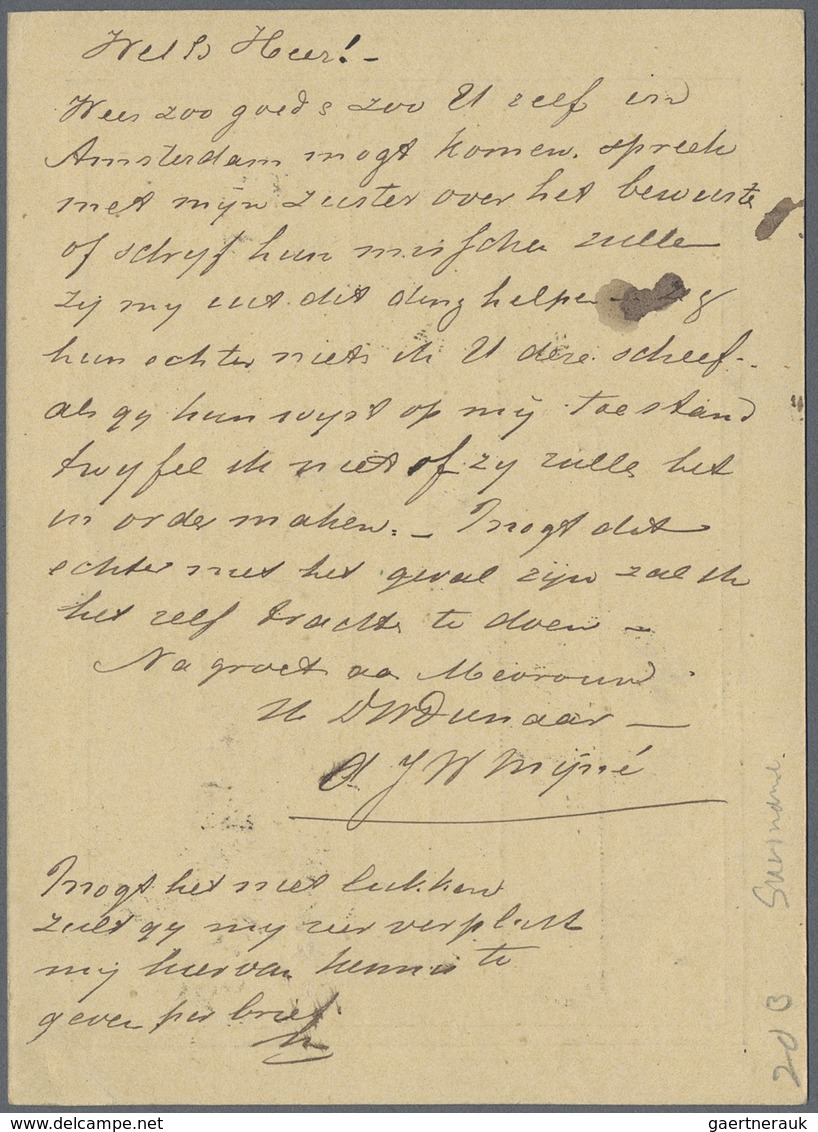 Wel Ed Heer! -
Wees zoo goed & zoo U zelf in
Amsterdam mogt komen. spreek
met mijn zuster over het bewuste
of schryf hun misschie zulle
zy my uit dit ding helpe - zeg
hun echter niets ik U deze schreef -
als gy hun wyst op mij toestand
twyfel ik niet of zy zulle het
in order maken. - Mogt dit
echter niet het geval zijn zal ik
het zelf trachte te doen -
Na groet aa Mevrouw
U DWDienaar -
A J W Mijné
Mogt het niet lukken
zult gy my zeer verplicht
mij hiervan kennis te
geven per brief
Suriname
20 B
gaertnerauk